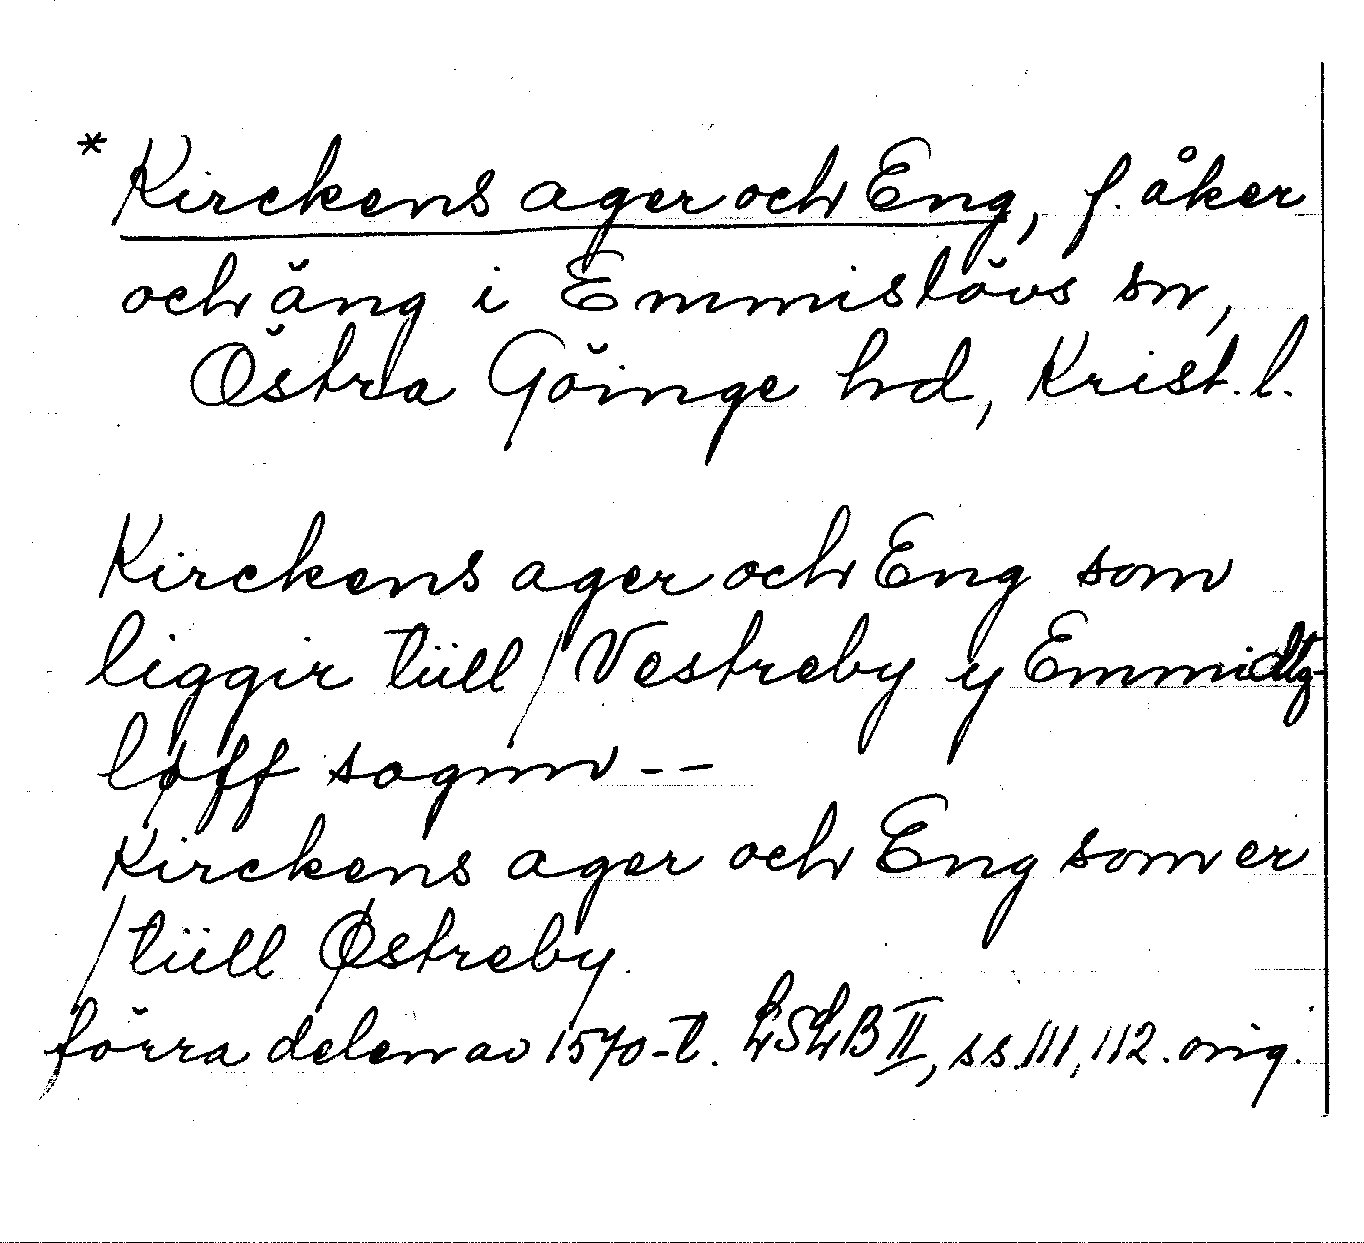 * Kirckens ager och Eng, f. åker
och äng i Emmislövs sn,
Östra Göinge hd, Krist. l.
Kirckens ager och Eng som
liggir tüll / Vestreby y Emmidtz-
løff sognn --
Kirckens ager och Eng som er
/ tüll Østreby.
förra delen av 1570-t. LSLB II, ss. 111, 112. orig.